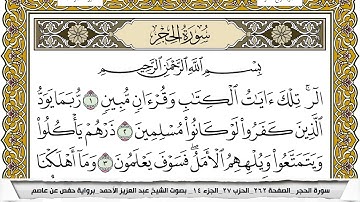 سُورَةُ الحِجْرِ
بِسْمِ ٱللَّهِ ٱلرَّحْمَٰنِ ٱلرَّحِيمِ
الٓرۚ تِلْكَ ءَايَٰتُ ٱلْكِتَٰبِ وَقُرْءَانٍ مُّبِينٍ ١ رُّبَمَا يَوَدُّ
ٱلَّذِينَ كَفَرُوا۟ لَوْ كَانُوا۟ مُسْلِمِينَ ٢ ذَرْهُمْ يَأْكُلُوا۟
وَيَتَمَتَّعُوا۟ وَيُلْهِهِمُ ٱلْأَمَلُۖ فَسَوْفَ يَعْلَمُونَ ٣ وَمَآ أَهْلَكْنَا
سورة الحجر _ الصفحة ٢٦٢ _ الحزب ٢٧ _ الجزء ١٤ _ بصوت الشيخ عبد العزيز الأحمد _ برواية حفص عن عاصم